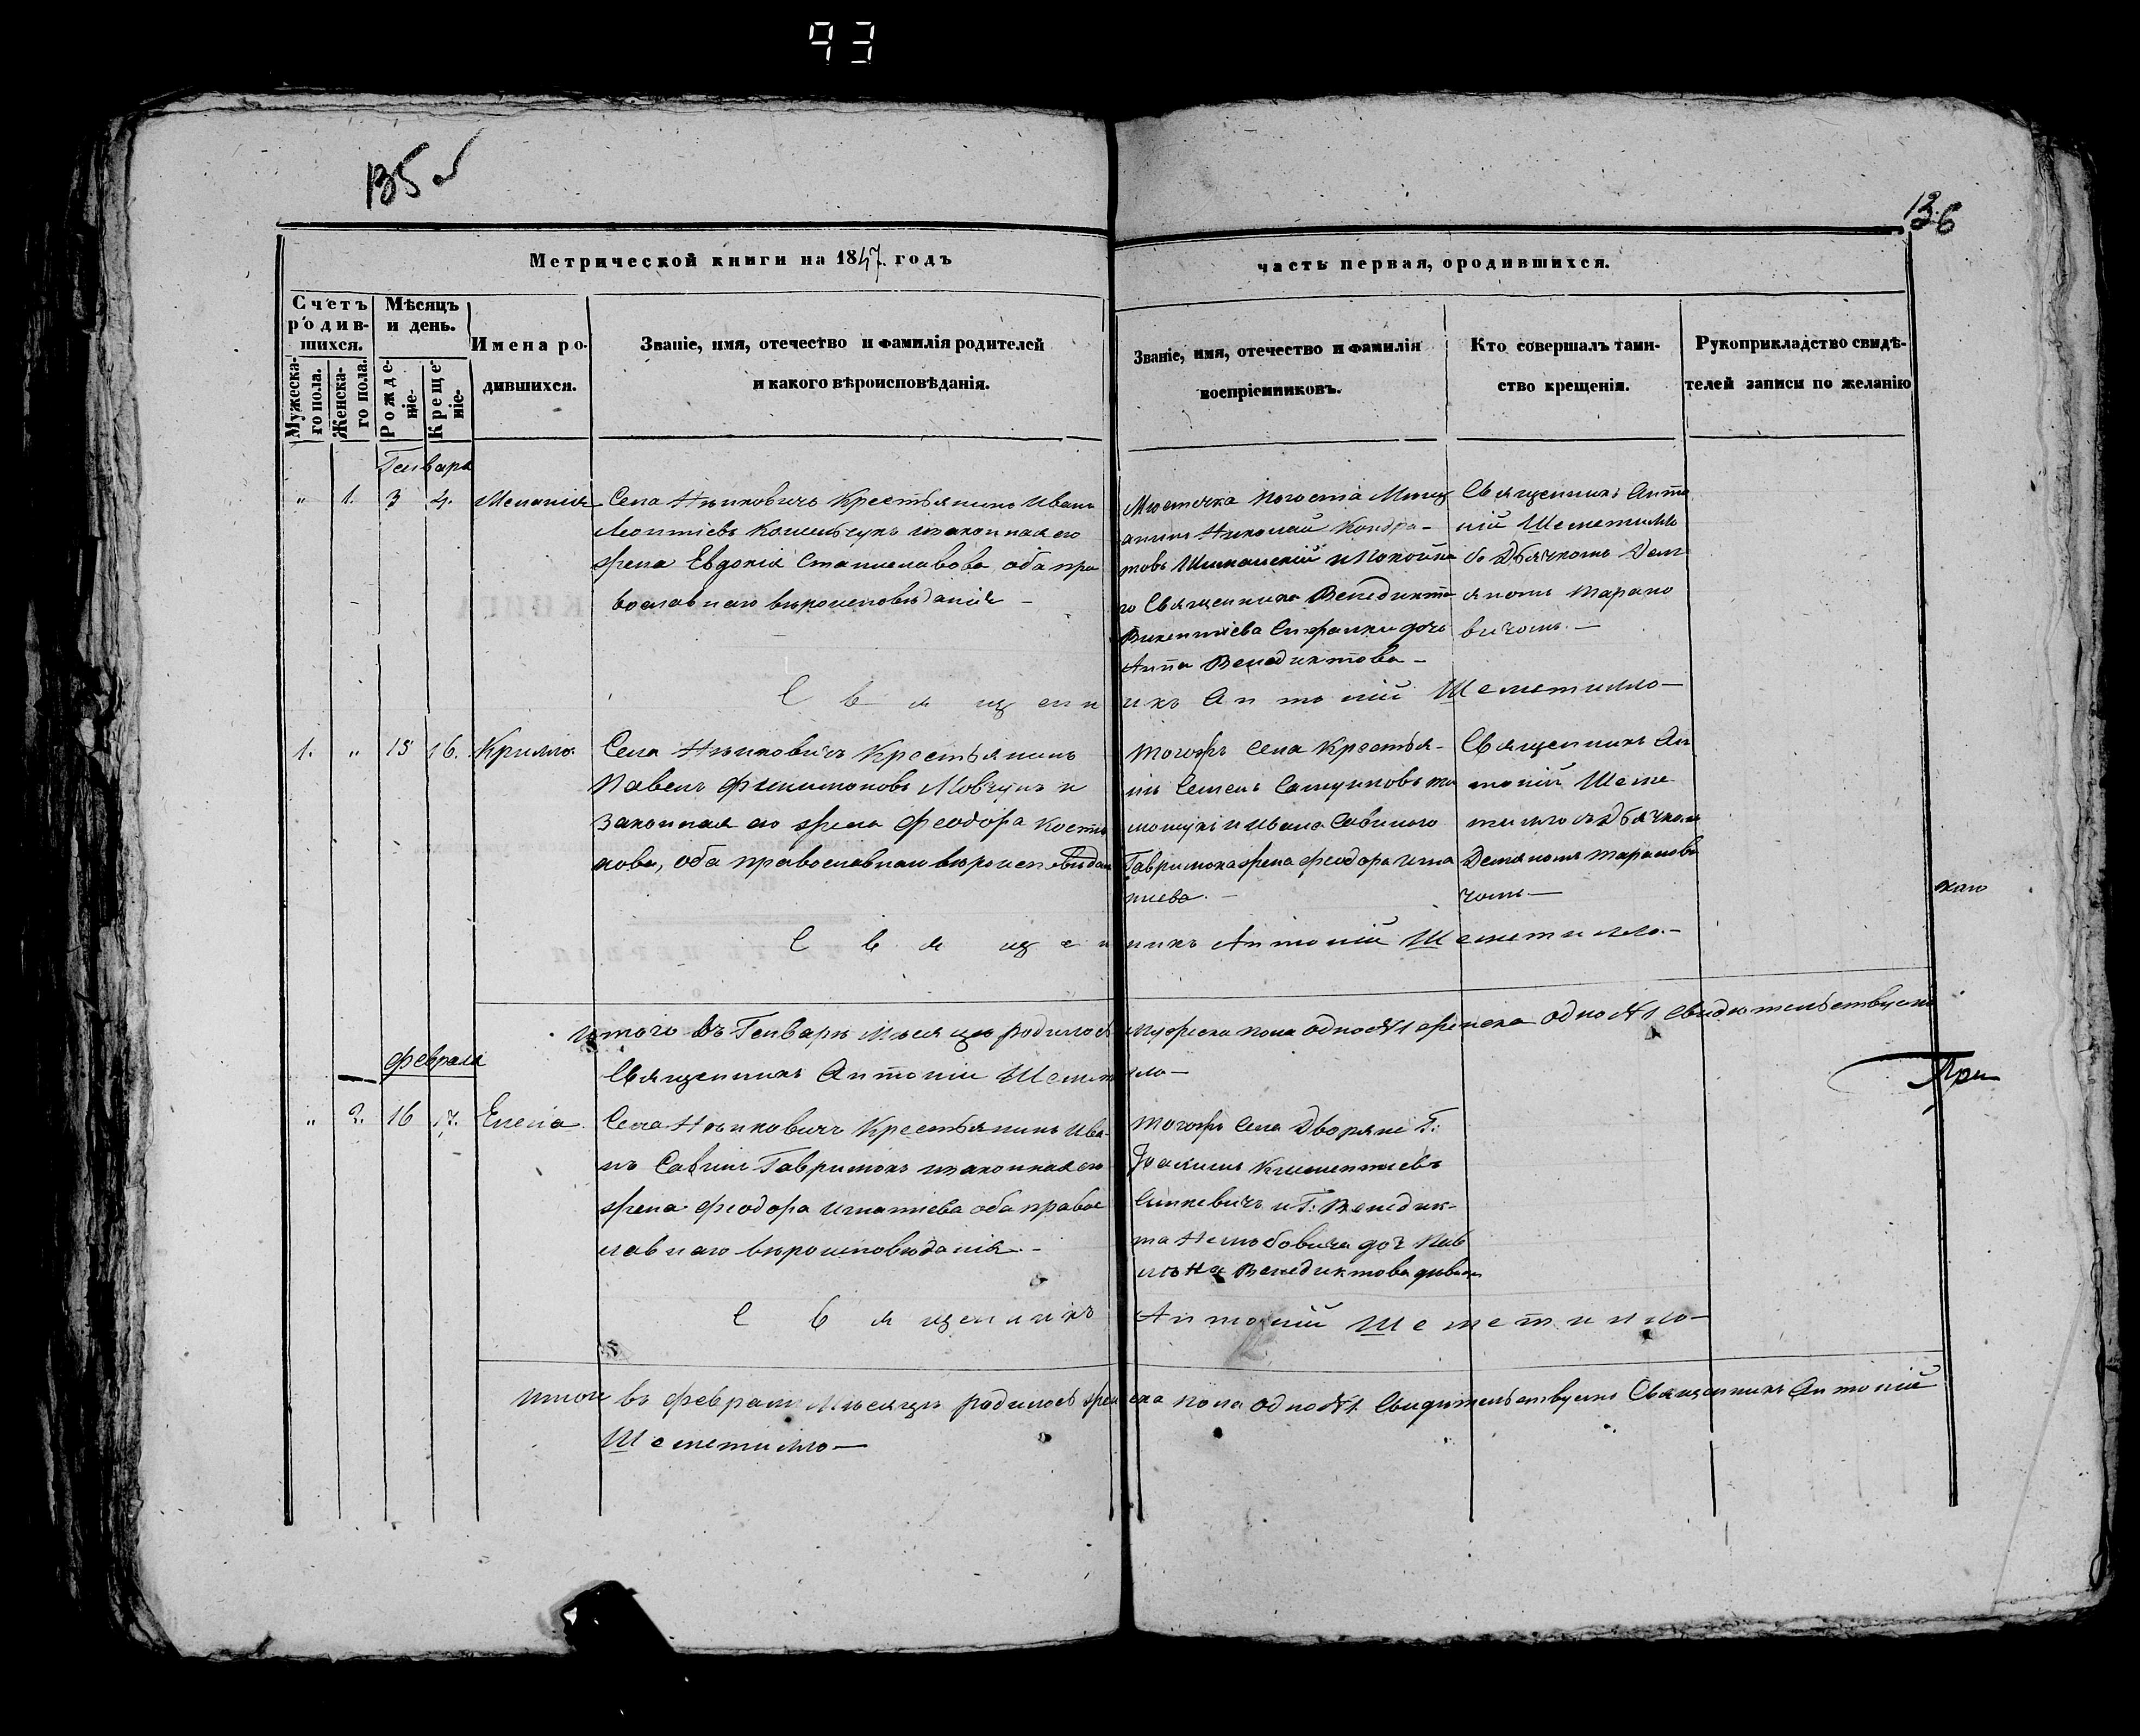 93
135 об
136
Метрической книги на 1847 годъ
часть первая, ородившихся.
Счетъ родив-шихся.
Мужеска-го пола.
Женска-го пола.
Мѣсяцъ и день.
Рожде-ніе.
Креще-ніе.
Имена ро-
дившихся.
Званіе, имя, отечество и фамилія родителей
и какого вѣроисповѣданія.
Званіе, имя, отечество и фамилія
воспріемниковъ.
Кто совершалъ таин-
ство крещенія.
Рукоприкладство свидѣ-
телей записи по желанію
Генваря
" 1. 3 4. Меланія
Села Крестьянинъ Иванъ
Леонтіевъ изаконная его
жена Евдокія Станиславова, оба пра
вославнаго вѣроисповѣданія –
Мѣстечка Погоста
Николай Кондра-
товъ и покойна
го Священника Венедикта
Викентіева дочь
Анна Венедиктова –
Священникъ Анто
ній Шеметилло
съ Дьячкомъ Дем
яномъ Тарано
вичомъ. –
Священникъ Антоній Шеметилло –
1. " 15 16. Кирилло
Села Крестьянинъ
Павелъ Филимоновъ Мовчунъ и
Законная его жена Феодора
оба православнаго вѣроисповѣдан
Тогожъ Села Крестья-
нъ Семенъ
и Ивана Савинаго
Гаврилюка жена Феодора Игна
тіева. –
Священникъ Ан
тоній Шеме
тилло съ Дьячкомъ
Демяномъ Таранови
чомъ –
Священникъ Антоній Шеметилло. –
Итого въ Генварѣ Мѣсяцѣ родилось мужеска пола одно №1 женска одно №1 Свидѣтельствуемъ
Священникъ Антоній Шеметилло –
Февраля
" 2. 16 17. Елена
Села Крестьянинъ Ива-
нъ Савинъ Гаврилюкъ изаконная его
жена Феодора Игнатіева оба правос
лавнаго вѣроисповѣданія. –
Тогожъ Села Дворяне Г:
Іоакимъ Климентіевъ
Синкевичъ и Г: Венедик-
та дочь
Венедиктова
Священникъ Антоній Шеметилло –
Итого въ Февралѣ Мѣсяцѣ родилось женска пола одно №1. Свидѣтельствуемъ Священникъ Антоній
Шеметилло –